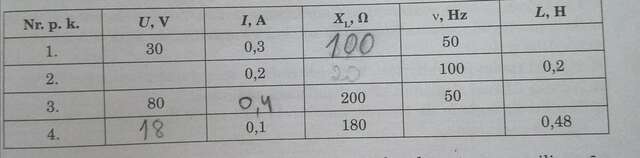 Nr. p. k. U, V I, A X_L, Ω ν, Hz L, H
1. 30 0,3 100 50
2. 0,2 20 100 0,2
3. 80 0,4 200 50
4. 18 0,1 180 0,48